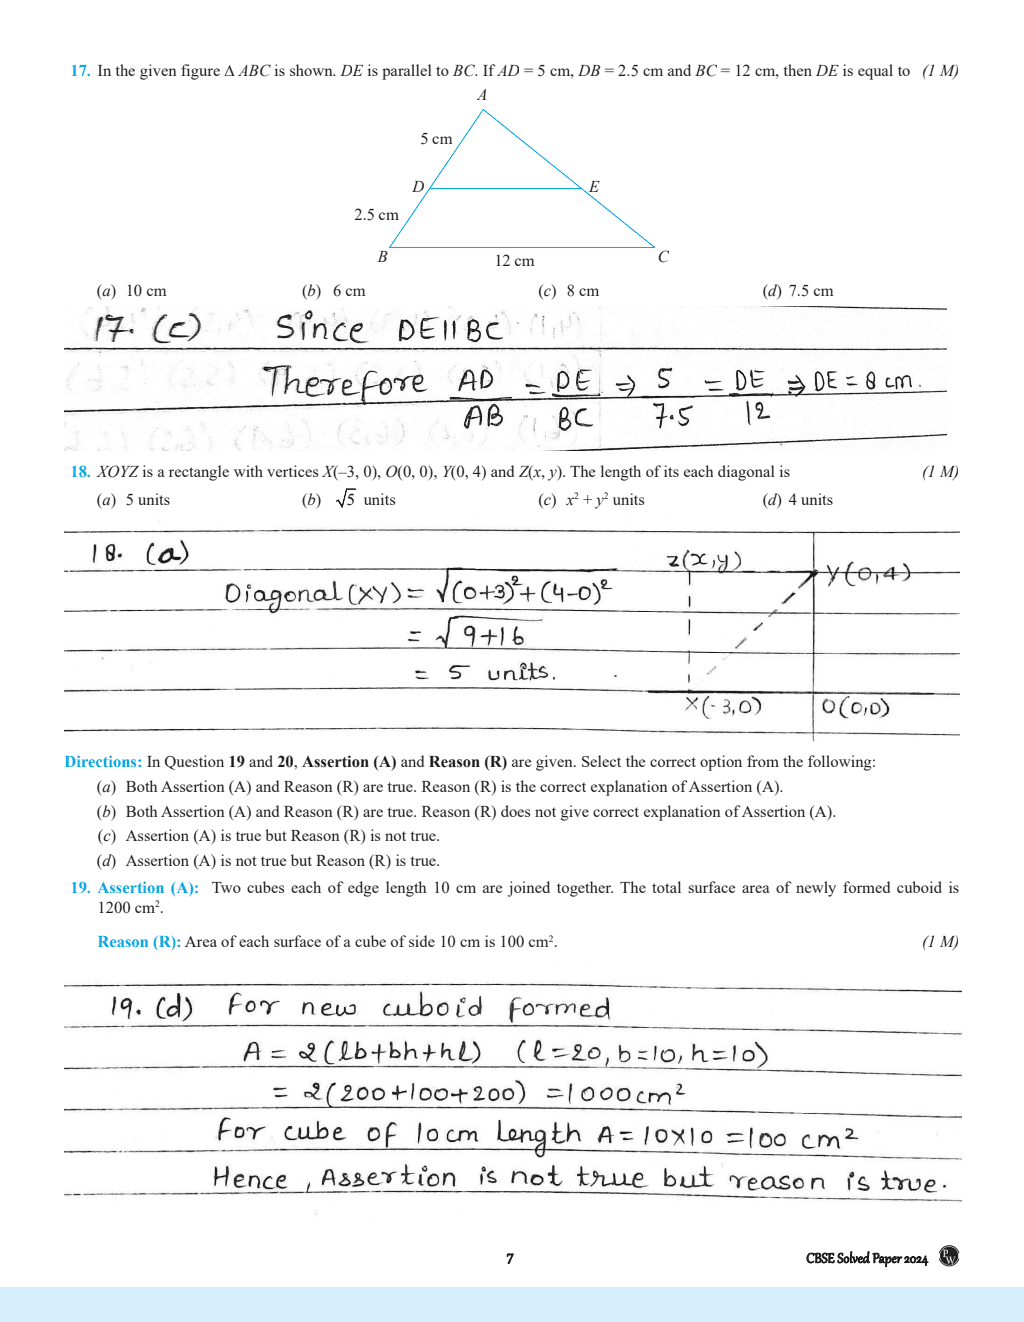 17. In the given figure Δ ABC is shown. DE is parallel to BC. If AD = 5 cm, DB = 2.5 cm and BC = 12 cm, then DE is equal to (1 M)
A
5 cm
D E
2.5 cm
B C
12 cm
(a) 10 cm (b) 6 cm (c) 8 cm (d) 7.5 cm
17. (c) Since DE||BC
Therefore AD/AB = DE/BC ⇒ 5/7.5 = DE/12 ⇒ DE = 8 cm.
18. XOYZ is a rectangle with vertices X(–3, 0), O(0, 0), Y(0, 4) and Z(x, y). The length of its each diagonal is (1 M)
(a) 5 units (b) √5 units (c) x² + y² units (d) 4 units
18. (a)
Z(x,y) Y(0,4)
Diagonal (XY) = √(0+3)²+(4-0)²
= √9+16
= 5 units.
X(-3,0) O(0,0)
Directions: In Question 19 and 20, Assertion (A) and Reason (R) are given. Select the correct option from the following:
(a) Both Assertion (A) and Reason (R) are true. Reason (R) is the correct explanation of Assertion (A).
(b) Both Assertion (A) and Reason (R) are true. Reason (R) does not give correct explanation of Assertion (A).
(c) Assertion (A) is true but Reason (R) is not true.
(d) Assertion (A) is not true but Reason (R) is true.
19. Assertion (A): Two cubes each of edge length 10 cm are joined together. The total surface area of newly formed cuboid is
1200 cm².
Reason (R): Area of each surface of a cube of side 10 cm is 100 cm². (1 M)
19. (d) For new cuboid formed
A = 2(lb+bh+hl) (l=20, b=10, h=10)
= 2(200+100+200) = 1000 cm²
For cube of 10cm length A = 10x10 = 100 cm²
Hence, Assertion is not true but reason is true.
7
CBSE Solved Paper 2024
PW